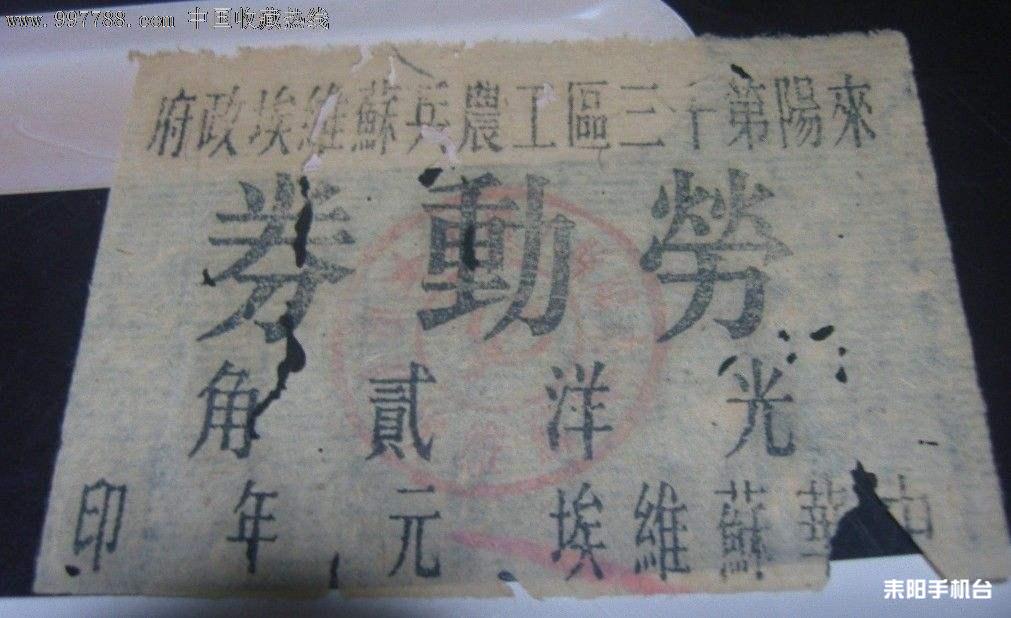 www.997788.com 中国收藏热线
來陽第十三區工農兵蘇維埃政府
勞動券
光洋貳角
中華蘇維埃元年印
耒阳手机台